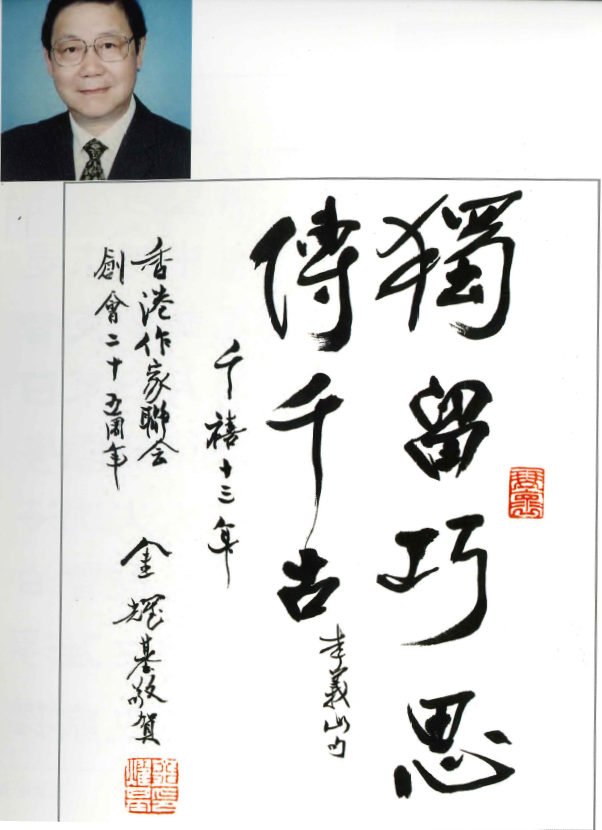 獨留巧思
傳千古
李義山句
千禧十三年
香港作家聯会
創會二十五周年
金耀基敬賀